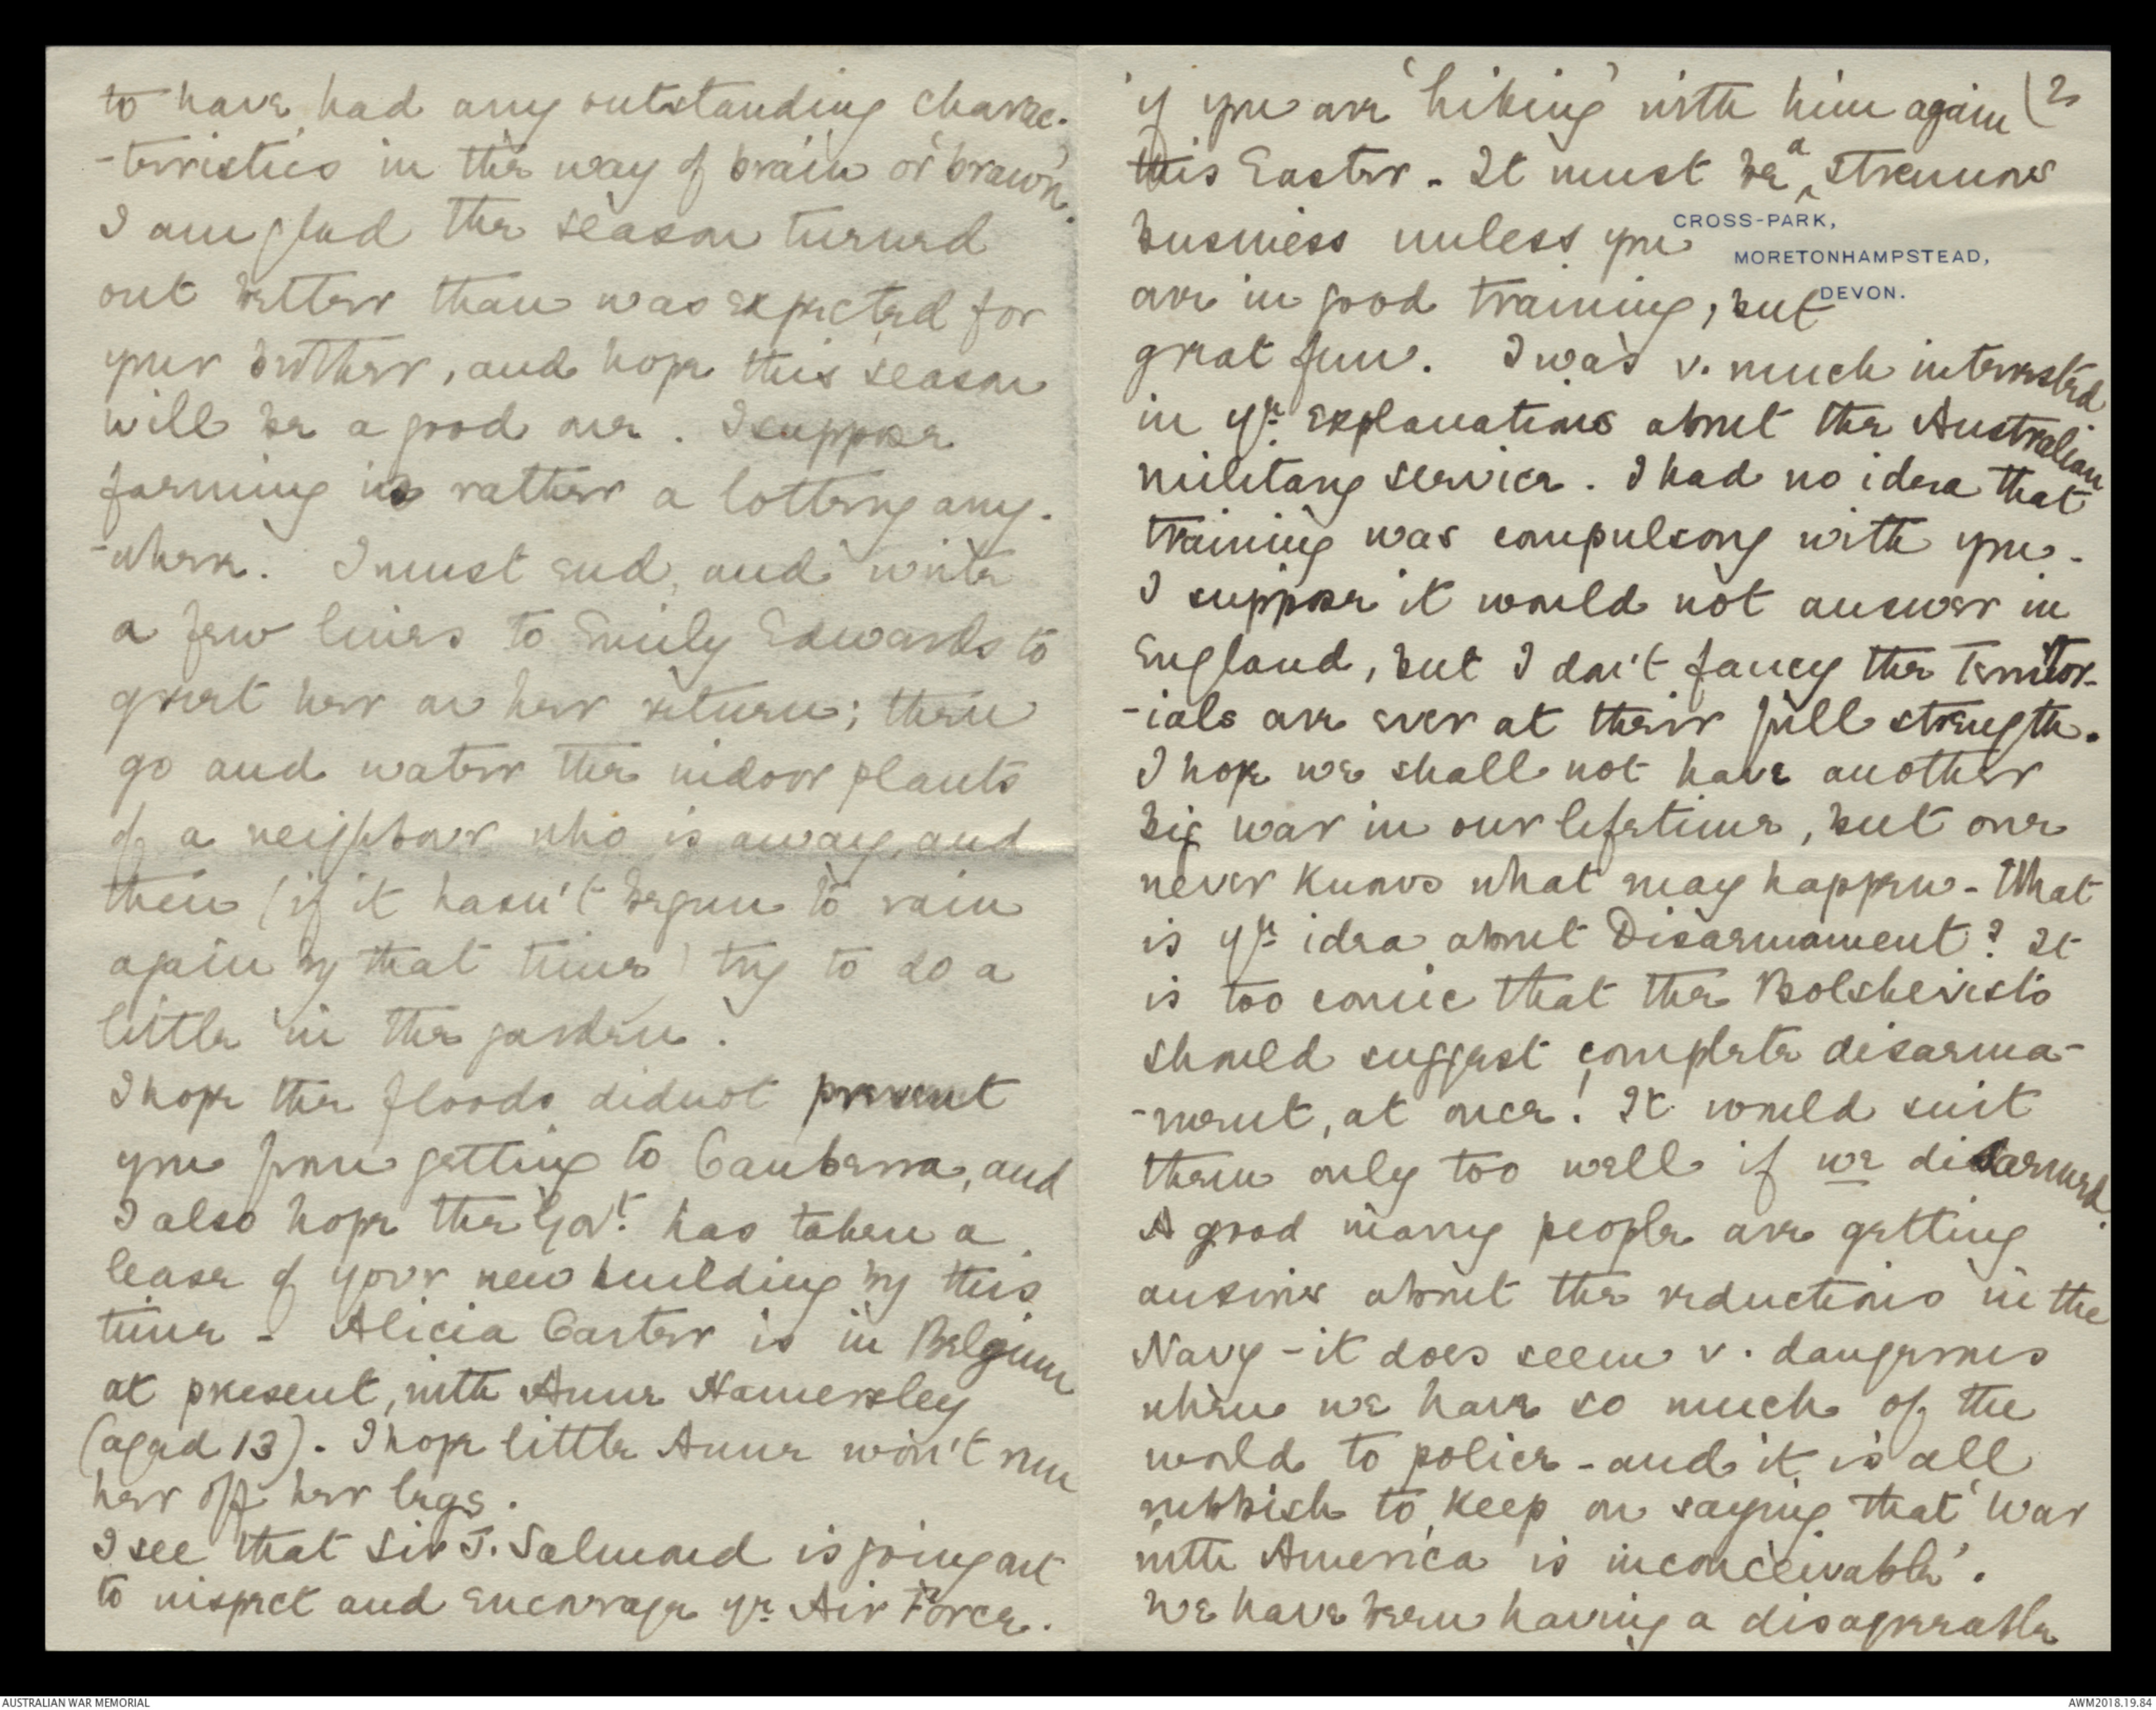 to have had any outstanding charac-
-teristics in the way of brain or 'brawn'.
I am glad the season turned
out better than was expected for
your brother, and hope this season
will be a good one. I suppose
farming is rather a lottery any-
-where. I must end, and write
a few lines to Emily Edwards to
greet her on her return; then
go and water the indoor plants
of a neighbour who is away, and
then (if it hasn't begun to rain
again by that time) try to do a
little in the garden.
I hope the floods did not prevent
you from getting to Canberra, and
I also hope the Govt. has taken a
lease of your new building by this
time - Alicia Carter is in Belgium
at present, with Anne Hamersley
(aged 13). I hope little Anne won't run
her off her legs.
I see that Sir J. Salmond is going out
to inspect and encourage yr Air Force.
(2
if you are 'hiking' with him again
this Easter - It must be a strenuous
business unless you
are in good training, but
CROSS-PARK,
MORETONHAMPSTEAD,
DEVON.
great fun. I was v. much interested
in yr. explanations about the Australian
military service. I had no idea that
training was compulsory with you -
I suppose it would not answer in
England, but I don't fancy the Territor-
-ials are ever at their full strength.
I hope we shall not have another
big war in our lifetime, but one
never knows what may happen - What
is yr. idea about Disarmament? It
is too comic that the Bolshevists
should suggest complete disarma-
-ment, at once! It would suit
them only too well if we disarmed.
A good many people are getting
anxious about the reductions in the
Navy - it does seem v. dangerous
when we have so much of the
world to police - and it is all
rubbish to keep on saying that 'War
with America is inconceivable'.
We have been having a disagreeable
AUSTRALIAN WAR MEMORIAL
AWM2018.19.84